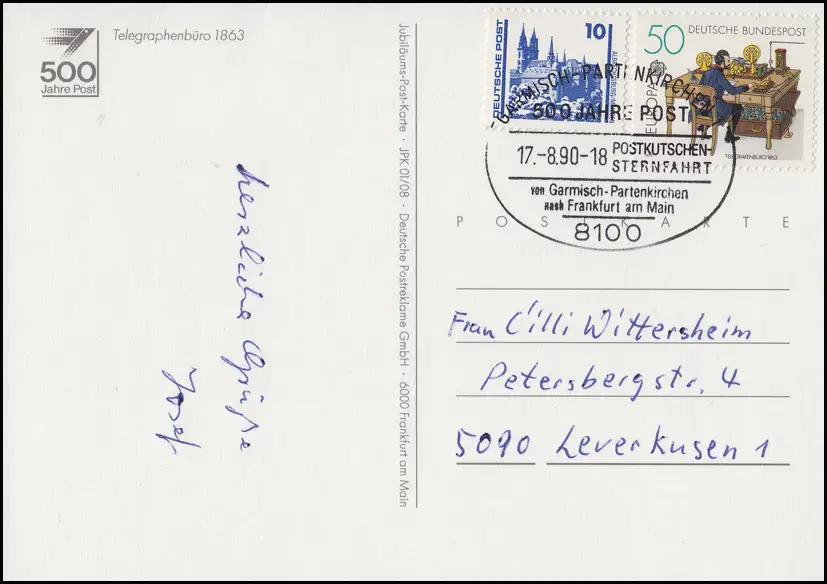 500
Jahre Post
Telegraphenbüro 1863
herzliche Grüße
Josef
Jubiläums-Post-Karte · JPK 01/08 · Deutsche Postreklame GmbH · 6000 Frankfurt am Main
DEUTSCHE POST
10
50
DEUTSCHE BUNDESPOST
EUROPA
TELEGRAFENBÜRO 1863
GARMISCH-PARTENKIRCHEN
500 JAHRE POST
17.-8.90-18
POSTKUTSCHEN-
STERNFAHRT
von Garmisch-Partenkirchen
nach Frankfurt am Main
8100
POSTKARTE
Frau Cilli Wittersheim
Petersbergstr. 4
5090 Leverkusen 1